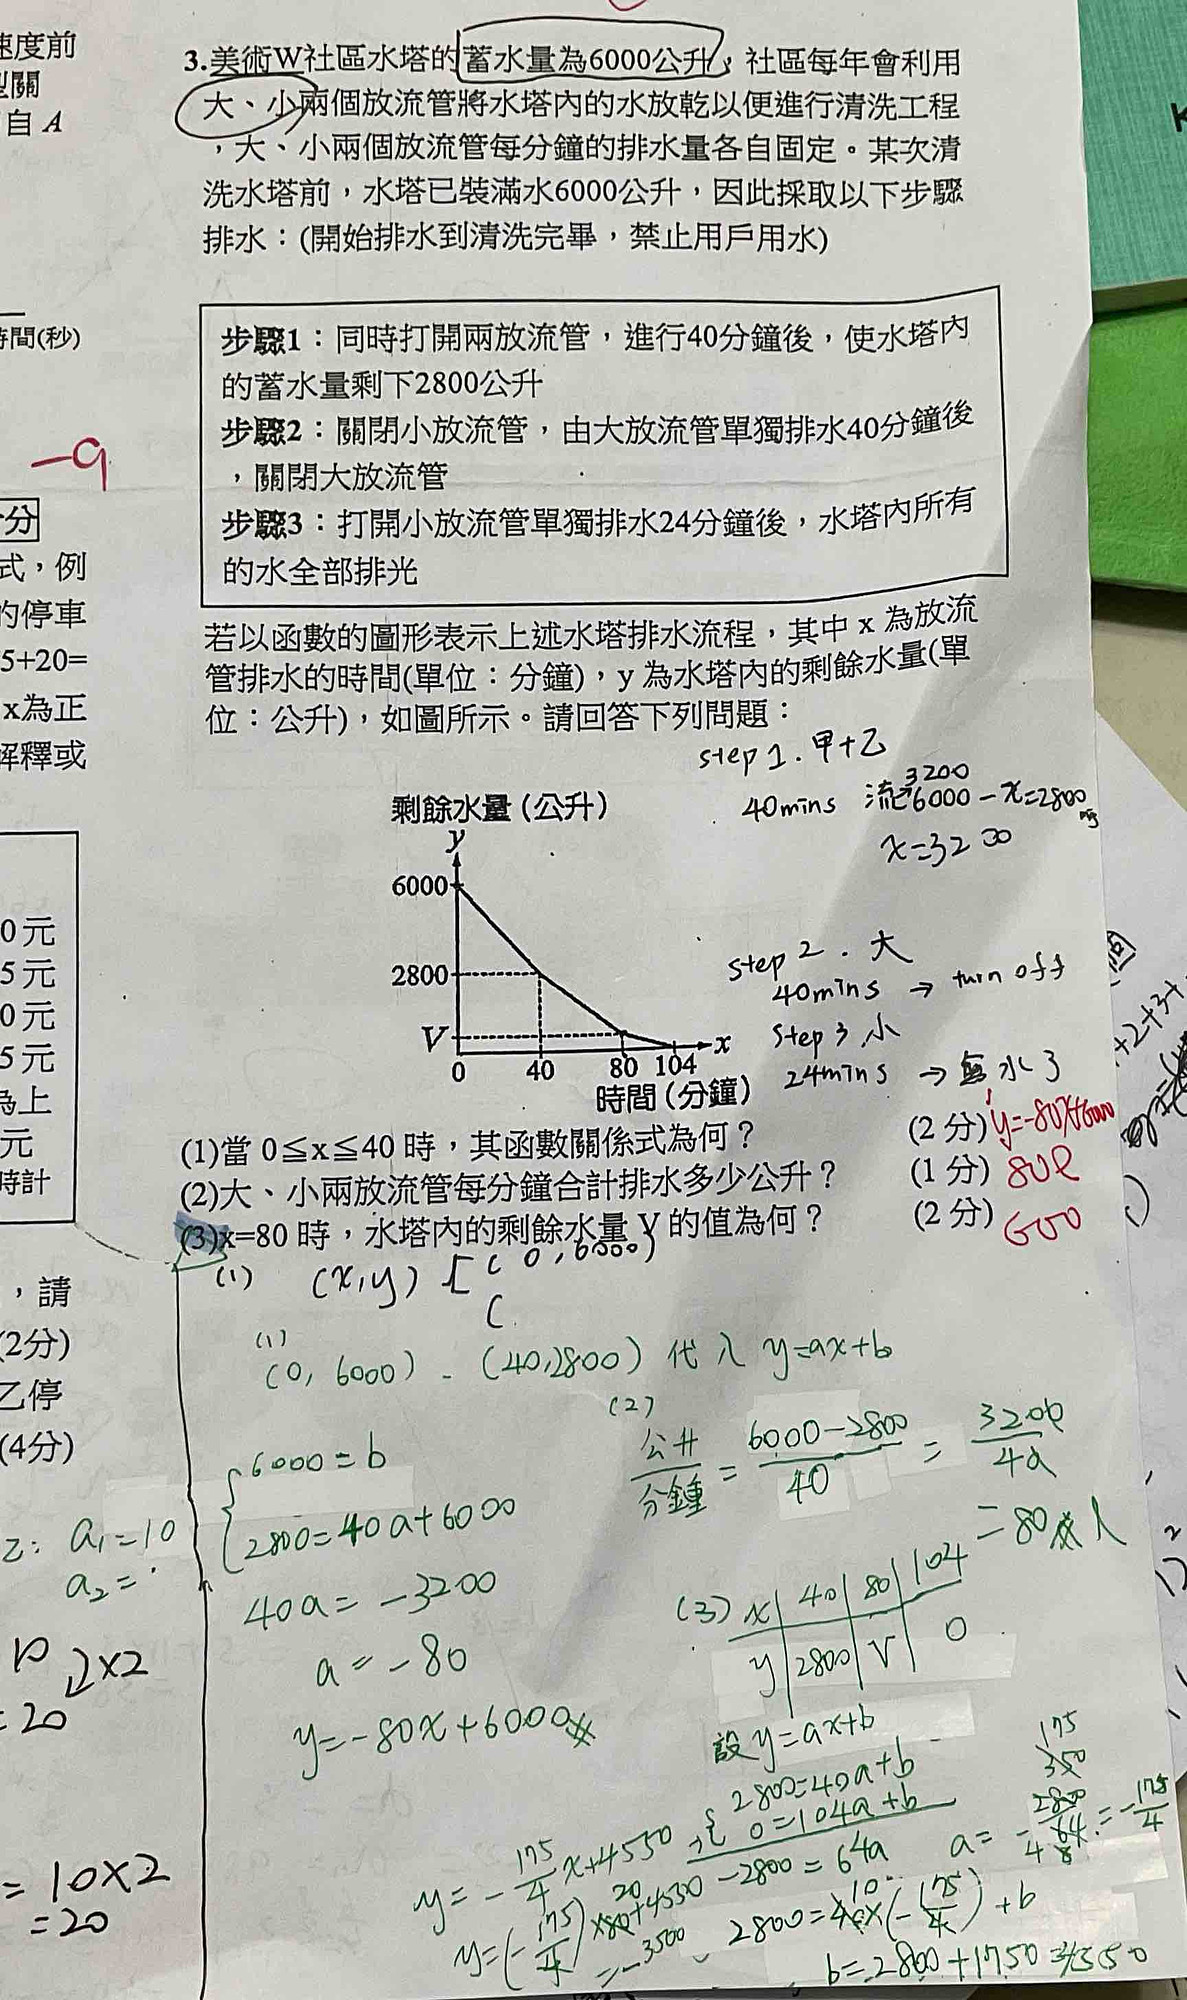 速度前
自 A
時間(秒)
-9
式，例
的停車
5+20=
x為正
解釋或
0元
5元
0元
5元
為上
元
時計
，請
(2分)
乙停
(4分)
乙: a₁=10
a₂=
×2
=20
=10×2
=20
3.美術W社區水塔的蓄水量為6000公升，社區每年會利用
大、小兩個放流管將水塔內的水放乾以便進行清洗工程
，大、小兩個放流管每分鐘的排水量各自固定。某次清
洗水塔前，水塔已裝滿水6000公升，因此採取以下步驟
排水：(開始排水到清洗完畢，禁止用戶用水)
步驟1：同時打開兩放流管，進行40分鐘後，使水塔內
的蓄水量剩下2800公升
步驟2：關閉小放流管，由大放流管單獨排水40分鐘後
，關閉大放流管
步驟3：打開小放流管單獨排水24分鐘後，水塔內所有
的水全部排光
若以函數的圖形表示上述水塔排水流程，其中 x 為放流
管排水的時間(單位：分鐘)，y 為水塔內的剩餘水量(單
位：公升)，如圖所示。請回答下列問題：
step 1. 甲+乙
40mins 流3200
6000-x=2800
x=3200
剩餘水量(公升)
y
6000
2800
V
0 40 80 104 x
時間(分鐘)
step 2. 大
40mins → turn off
step 3 小
24mins → 無水了
(1)當 0≦x≦40 時，其函數關係式為何？ (2分) y=-80x+6000
(2)大、小兩放流管每分鐘合計排水多少公升？ (1分) 80ℓ
(3)x=80 時，水塔內的剩餘水量 V 的值為何？ (2分) 600
(1) (x,y) [(0,6000)
(
(1)
(0, 6000)、(40,2800) 代入 y=ax+b
6000=b
2800=40a+6000
40a=-3200
a=-80
y=-80x+6000#
(2)
公升/分鐘 = (6000-2800)/40 = 3200/40
=80
(3) x | 40 | 80 | 104
y | 2800 | V | 0
設 y=ax+b
2800=40a+b
0=104a+b
-2800=64a
175
350
a= -2800/64 = -175/4
2800=40×(-175/4)+b
b=2800+1750=4550
y=-175/4x+4550
y=(-175/4)×80+4550
=-3500